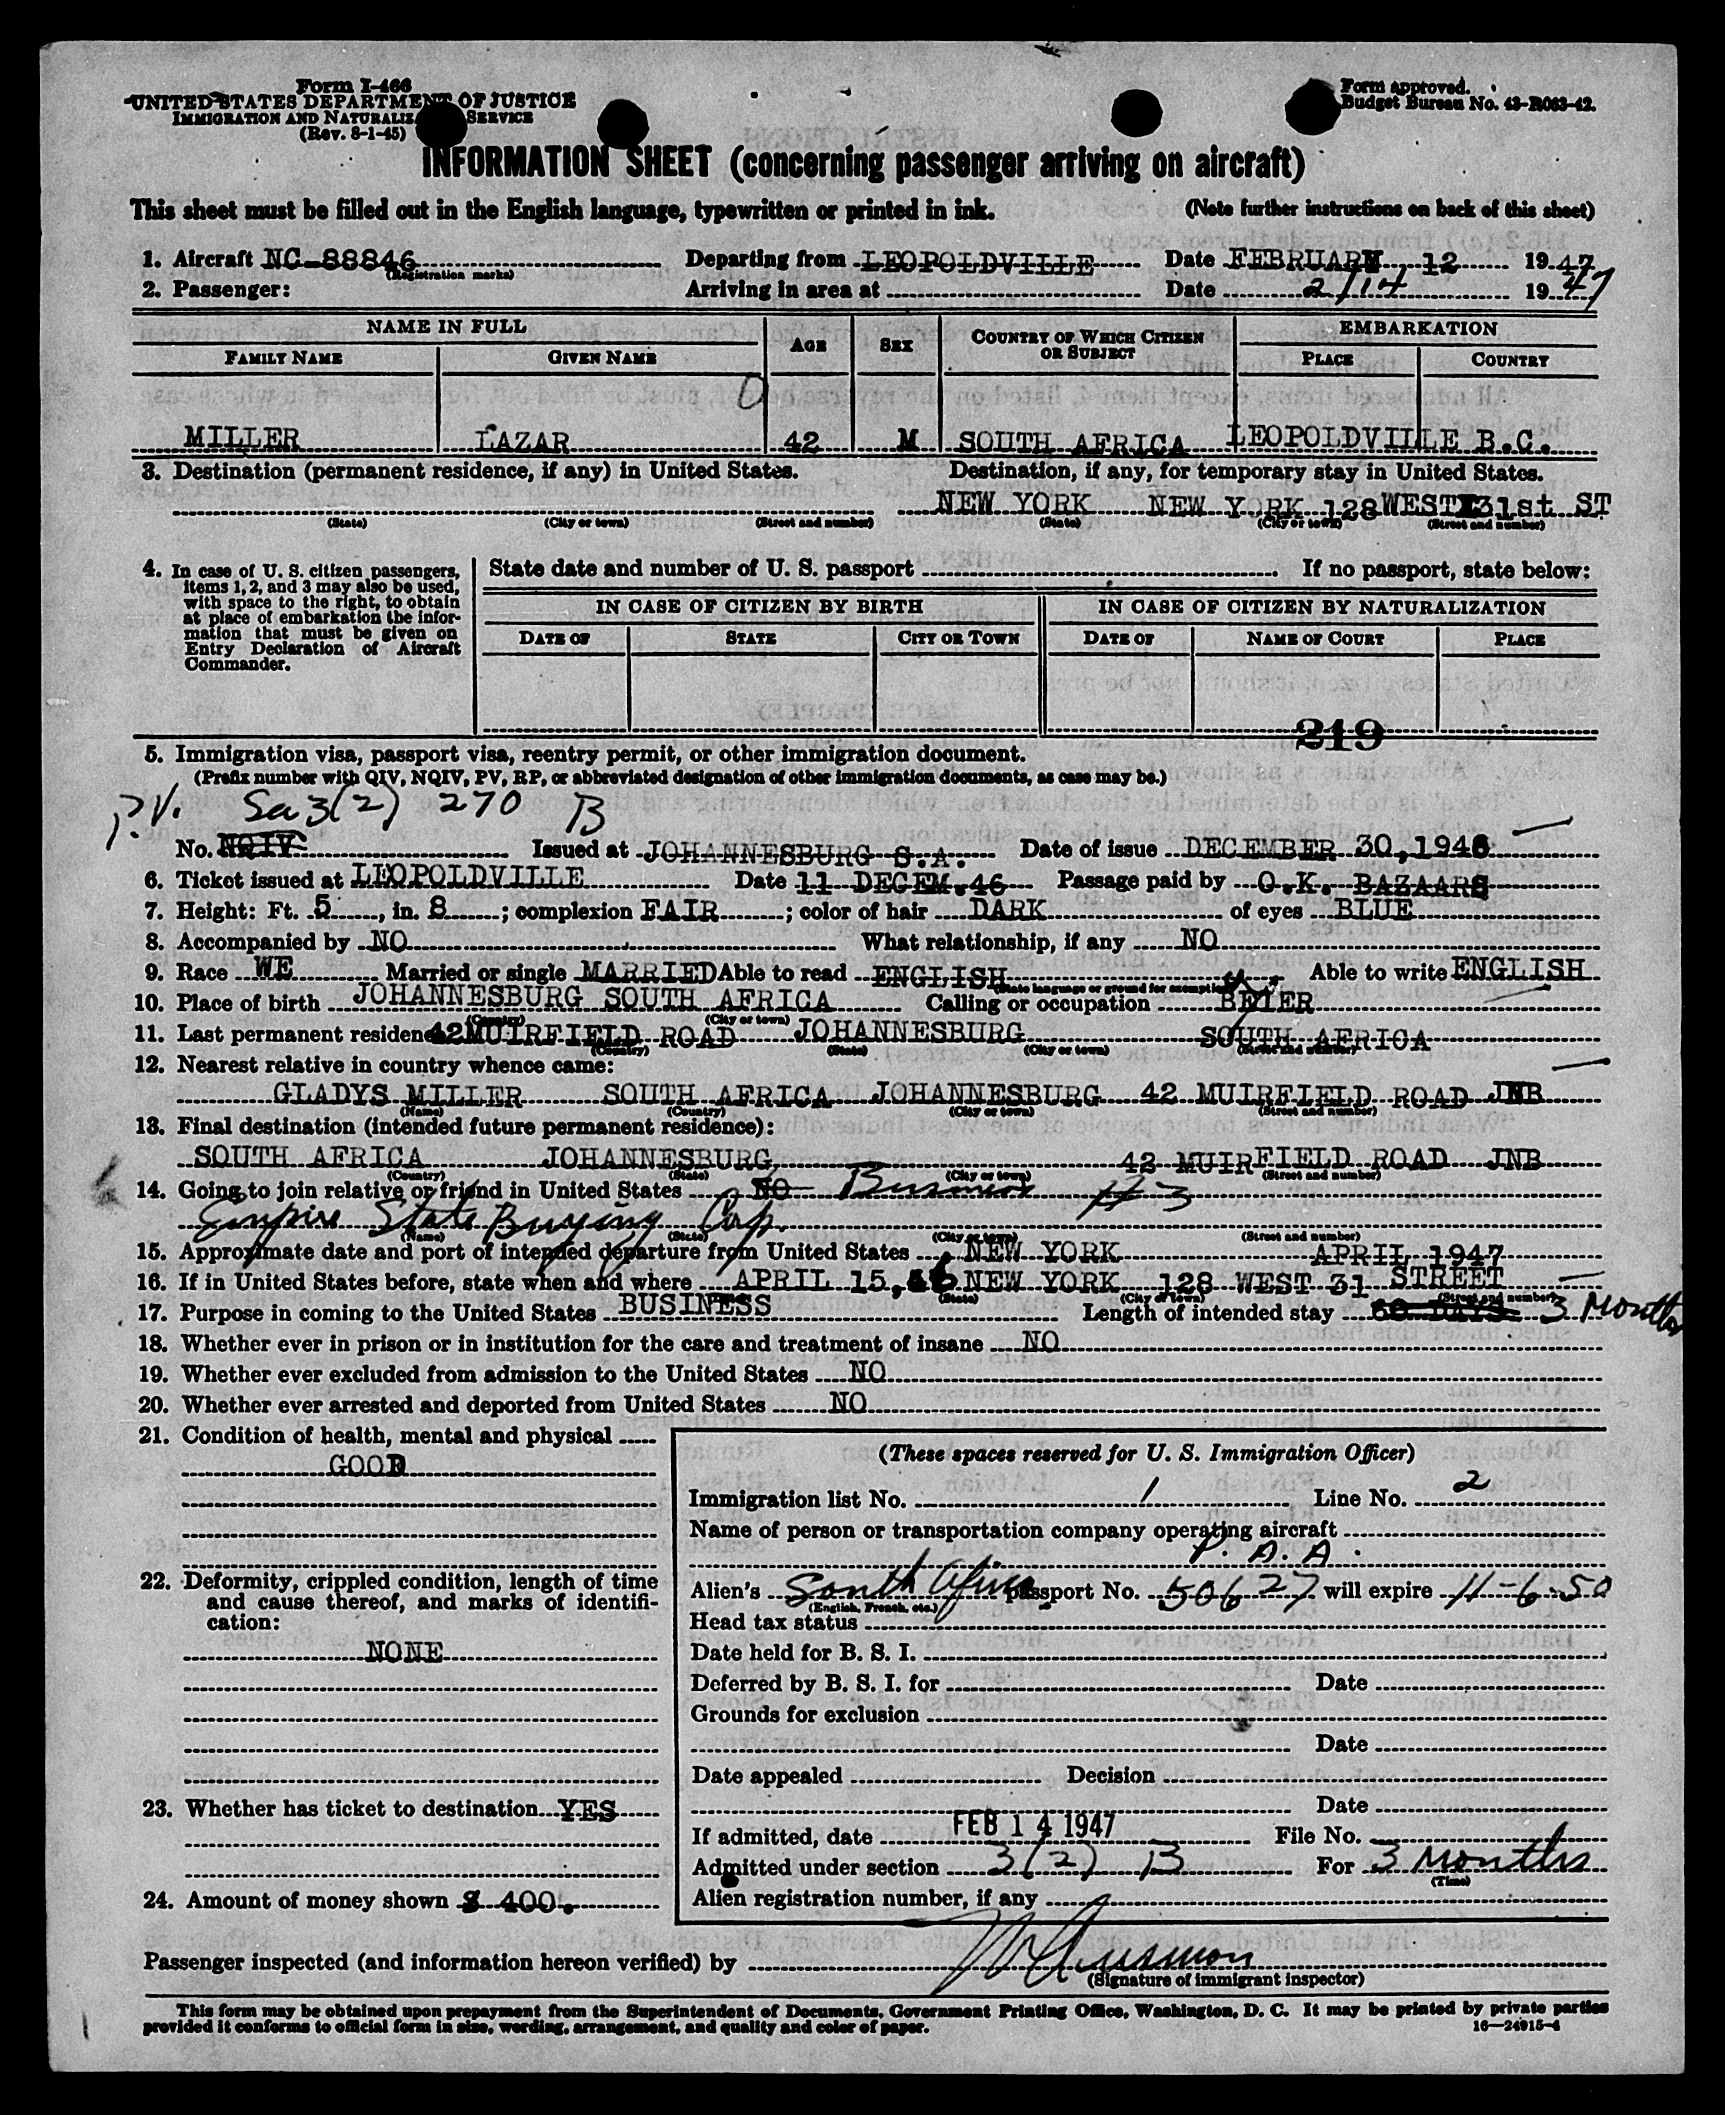 Form I-466
UNITED STATES DEPARTMENT OF JUSTICE
IMMIGRATION AND NATURALIZATION SERVICE
(Rev. 8-1-45)
Form approved.
Budget Bureau No. 43-R063-42.
INFORMATION SHEET (concerning passenger arriving on aircraft)
This sheet must be filled out in the English language, typewritten or printed in ink. (Note further instructions on back of this sheet)
1. Aircraft NC-88846 (Registration marks) Departing from LEOPOLDVILLE Date FEBRUARY 12 1947
2. Passenger: Arriving in area at Date 2/14 1947
NAME IN FULL AGE SEX COUNTRY OF WHICH CITIZEN OR SUBJECT EMBARKATION
FAMILY NAME GIVEN NAME PLACE COUNTRY
0
MILLER LAZAR 42 M SOUTH AFRICA LEOPOLDVILLE B.C.
3. Destination (permanent residence, if any) in United States. Destination, if any, for temporary stay in United States.
NEW YORK NEW YORK 128 WEST 31st ST
(State) (City or town) (Street and number) (State) (City or town) (Street and number)
4. In case of U. S. citizen passengers, items 1, 2, and 3 may also be used, with space to the right, to obtain at place of embarkation the information that must be given on Entry Declaration of Aircraft Commander.
State date and number of U. S. passport If no passport, state below:
IN CASE OF CITIZEN BY BIRTH IN CASE OF CITIZEN BY NATURALIZATION
DATE OF STATE CITY OR TOWN DATE OF NAME OF COURT PLACE
219
5. Immigration visa, passport visa, reentry permit, or other immigration document.
(Prefix number with QIV, NQIV, PV, RP, or abbreviated designation of other immigration documents, as case may be.)
P.V. Sec 3(2) 270 B
No. NQIV Issued at JOHANNESBURG S.A. Date of issue DECEMBER 30,1946
6. Ticket issued at LEOPOLDVILLE Date 11 DECEM.46 Passage paid by O.K. BAZAARS
7. Height: Ft. 5, in. 8; complexion FAIR; color of hair DARK of eyes BLUE
8. Accompanied by NO What relationship, if any NO
9. Race WE Married or single MARRIED Able to read ENGLISH Able to write ENGLISH
(State language or ground for exemption)
10. Place of birth JOHANNESBURG SOUTH AFRICA Calling or occupation
(Country) (City or town)
11. Last permanent residence 42 MUIRFIELD ROAD JOHANNESBURG SOUTH AFRICA
(Country) (State) (City or town) (Street and number)
12. Nearest relative in country whence came:
GLADYS MILLER SOUTH AFRICA JOHANNESBURG 42 MUIRFIELD ROAD JNB
(Name) (Country) (City or town) (Street and number)
13. Final destination (intended future permanent residence):
SOUTH AFRICA JOHANNESBURG 42 MUIRFIELD ROAD JNB
(Country) (State) (City or town) (Street and number)
14. Going to join relative or friend in United States NO Business #3
Empire State Buying Corp.
(Name) (State) (City or town) (Street and number)
15. Approximate date and port of intended departure from United States NEW YORK APRIL 1947
16. If in United States before, state when and where APRIL 15, 46 NEW YORK 128 WEST 31 STREET
(State) (City or town) (Street and number)
17. Purpose in coming to the United States BUSINESS Length of intended stay 60 DAYS 3 Months
18. Whether ever in prison or in institution for the care and treatment of insane NO
19. Whether ever excluded from admission to the United States NO
20. Whether ever arrested and deported from United States NO
21. Condition of health, mental and physical
GOOD
22. Deformity, crippled condition, length of time and cause thereof, and marks of identification:
NONE
23. Whether has ticket to destination YES
24. Amount of money shown $ 400.
(These spaces reserved for U. S. Immigration Officer)
Immigration list No. 1 Line No. 2
Name of person or transportation company operating aircraft
P. A. A.
Alien's South Africa passport No. 50627 will expire 11-6-50
(English, French, etc.)
Head tax status
Date held for B. S. I.
Deferred by B. S. I. for Date
Grounds for exclusion
Date
Date appealed Decision
Date
If admitted, date FEB 14 1947 File No.
Admitted under section 3(2) B For 3 Months
(Time)
Alien registration number, if any
Passenger inspected (and information hereon verified) by
(Signature of immigrant inspector)
This form may be obtained upon prepayment from the Superintendent of Documents, Government Printing Office, Washington, D. C. It may be printed by private parties
provided it conforms to official form in size, wording, arrangement, and quality and color of paper. 16—24915-4